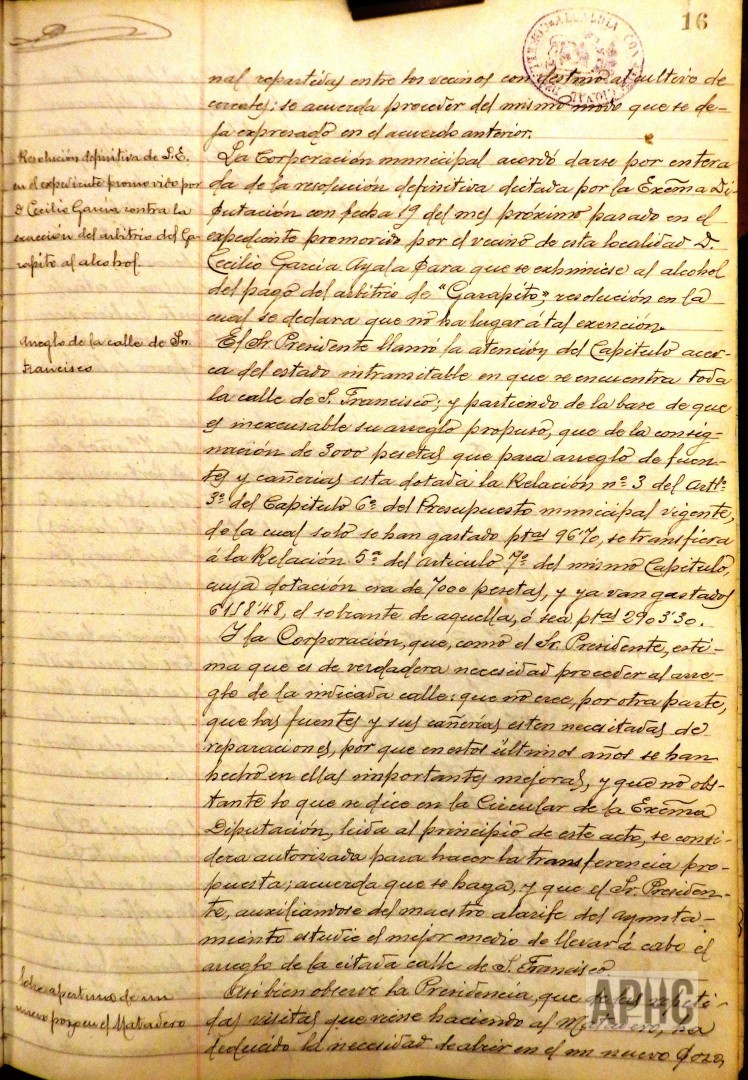 16
nal repartidas entre los vecinos con destino al cultivo de
cereales; se acuerda proceder del mismo modo que se de-
ja expresado en el acuerdo anterior.
Resolución definitiva de S. E.
en el expediente promovido por
D. Cecilio García contra la
exacción del arbitrio del Ga-
rapito al alcohol
La Corporación municipal acordó darse por entera
da de la resolución definitiva dictada por la Excma Di-
putación con fecha 19 del mes próximo pasado en el
expediente promovido por el vecino de esta localidad D.
Cecilio García Ayala para que se exhimiese al alcohol
del pago del arbitrio de "Garapito," resolución en la
cual se declara que no ha lugar á tal exención.
Arreglo de la calle de Sn.
Francisco
El Sr. Presidente llamó la atención del Capitulo acer-
ca del estado intransitable en que se encuentra toda
la calle de S. Francisco; y partiendo de la base de que
es inexcusable su arreglo propuso, que de la consig-
nación de 3000 pesetas que para arreglo de fuen-
tes y cañerias esta dotada la Relación nº 3 del Artlº
3º del Capitulo 6º del Presupuesto municipal vigente,
de la cual solo se han gastado ptas 96'70, se transfiera
á la Relación 5ª del articulo 7º del mismo Capitulo,
cuya dotación era de 7000 pesetas, y ya van gastados
6158'48, el sobrante de aquella, ó sea ptas 2903'30.
Y la Corporación, que, como el Sr. Presidente, esti-
ma que es de verdadera necesidad proceder al arre-
glo de la indicada calle: que no cree, por otra parte,
que las fuentes y sus cañerías esten necesitadas de
reparaciones, por que en estos últimos años se han
hecho en ellas importantes mejoras, y que no obs-
tante lo que se dice en la Circular de la Excma
Diputación, leida al principio de este acto, se consi-
dera autorizada para hacer la transferencia pro-
puesta; acuerda que se haga, y que el Sr. Presiden-
te, auxiliandose del maestro alarife del ayunta-
miento estudie el mejor medio de llevar á cabo el
arreglo de la citada calle de S. Francisco
Sobre apertura de un
nuevo pozo en el Matadero
Asi bien observe la Presidencia, que de las repeti-
das visitas que viene haciendo al Matadero, ha
deducido la necesidad de abrir en el un nuevo pozo,
APHC